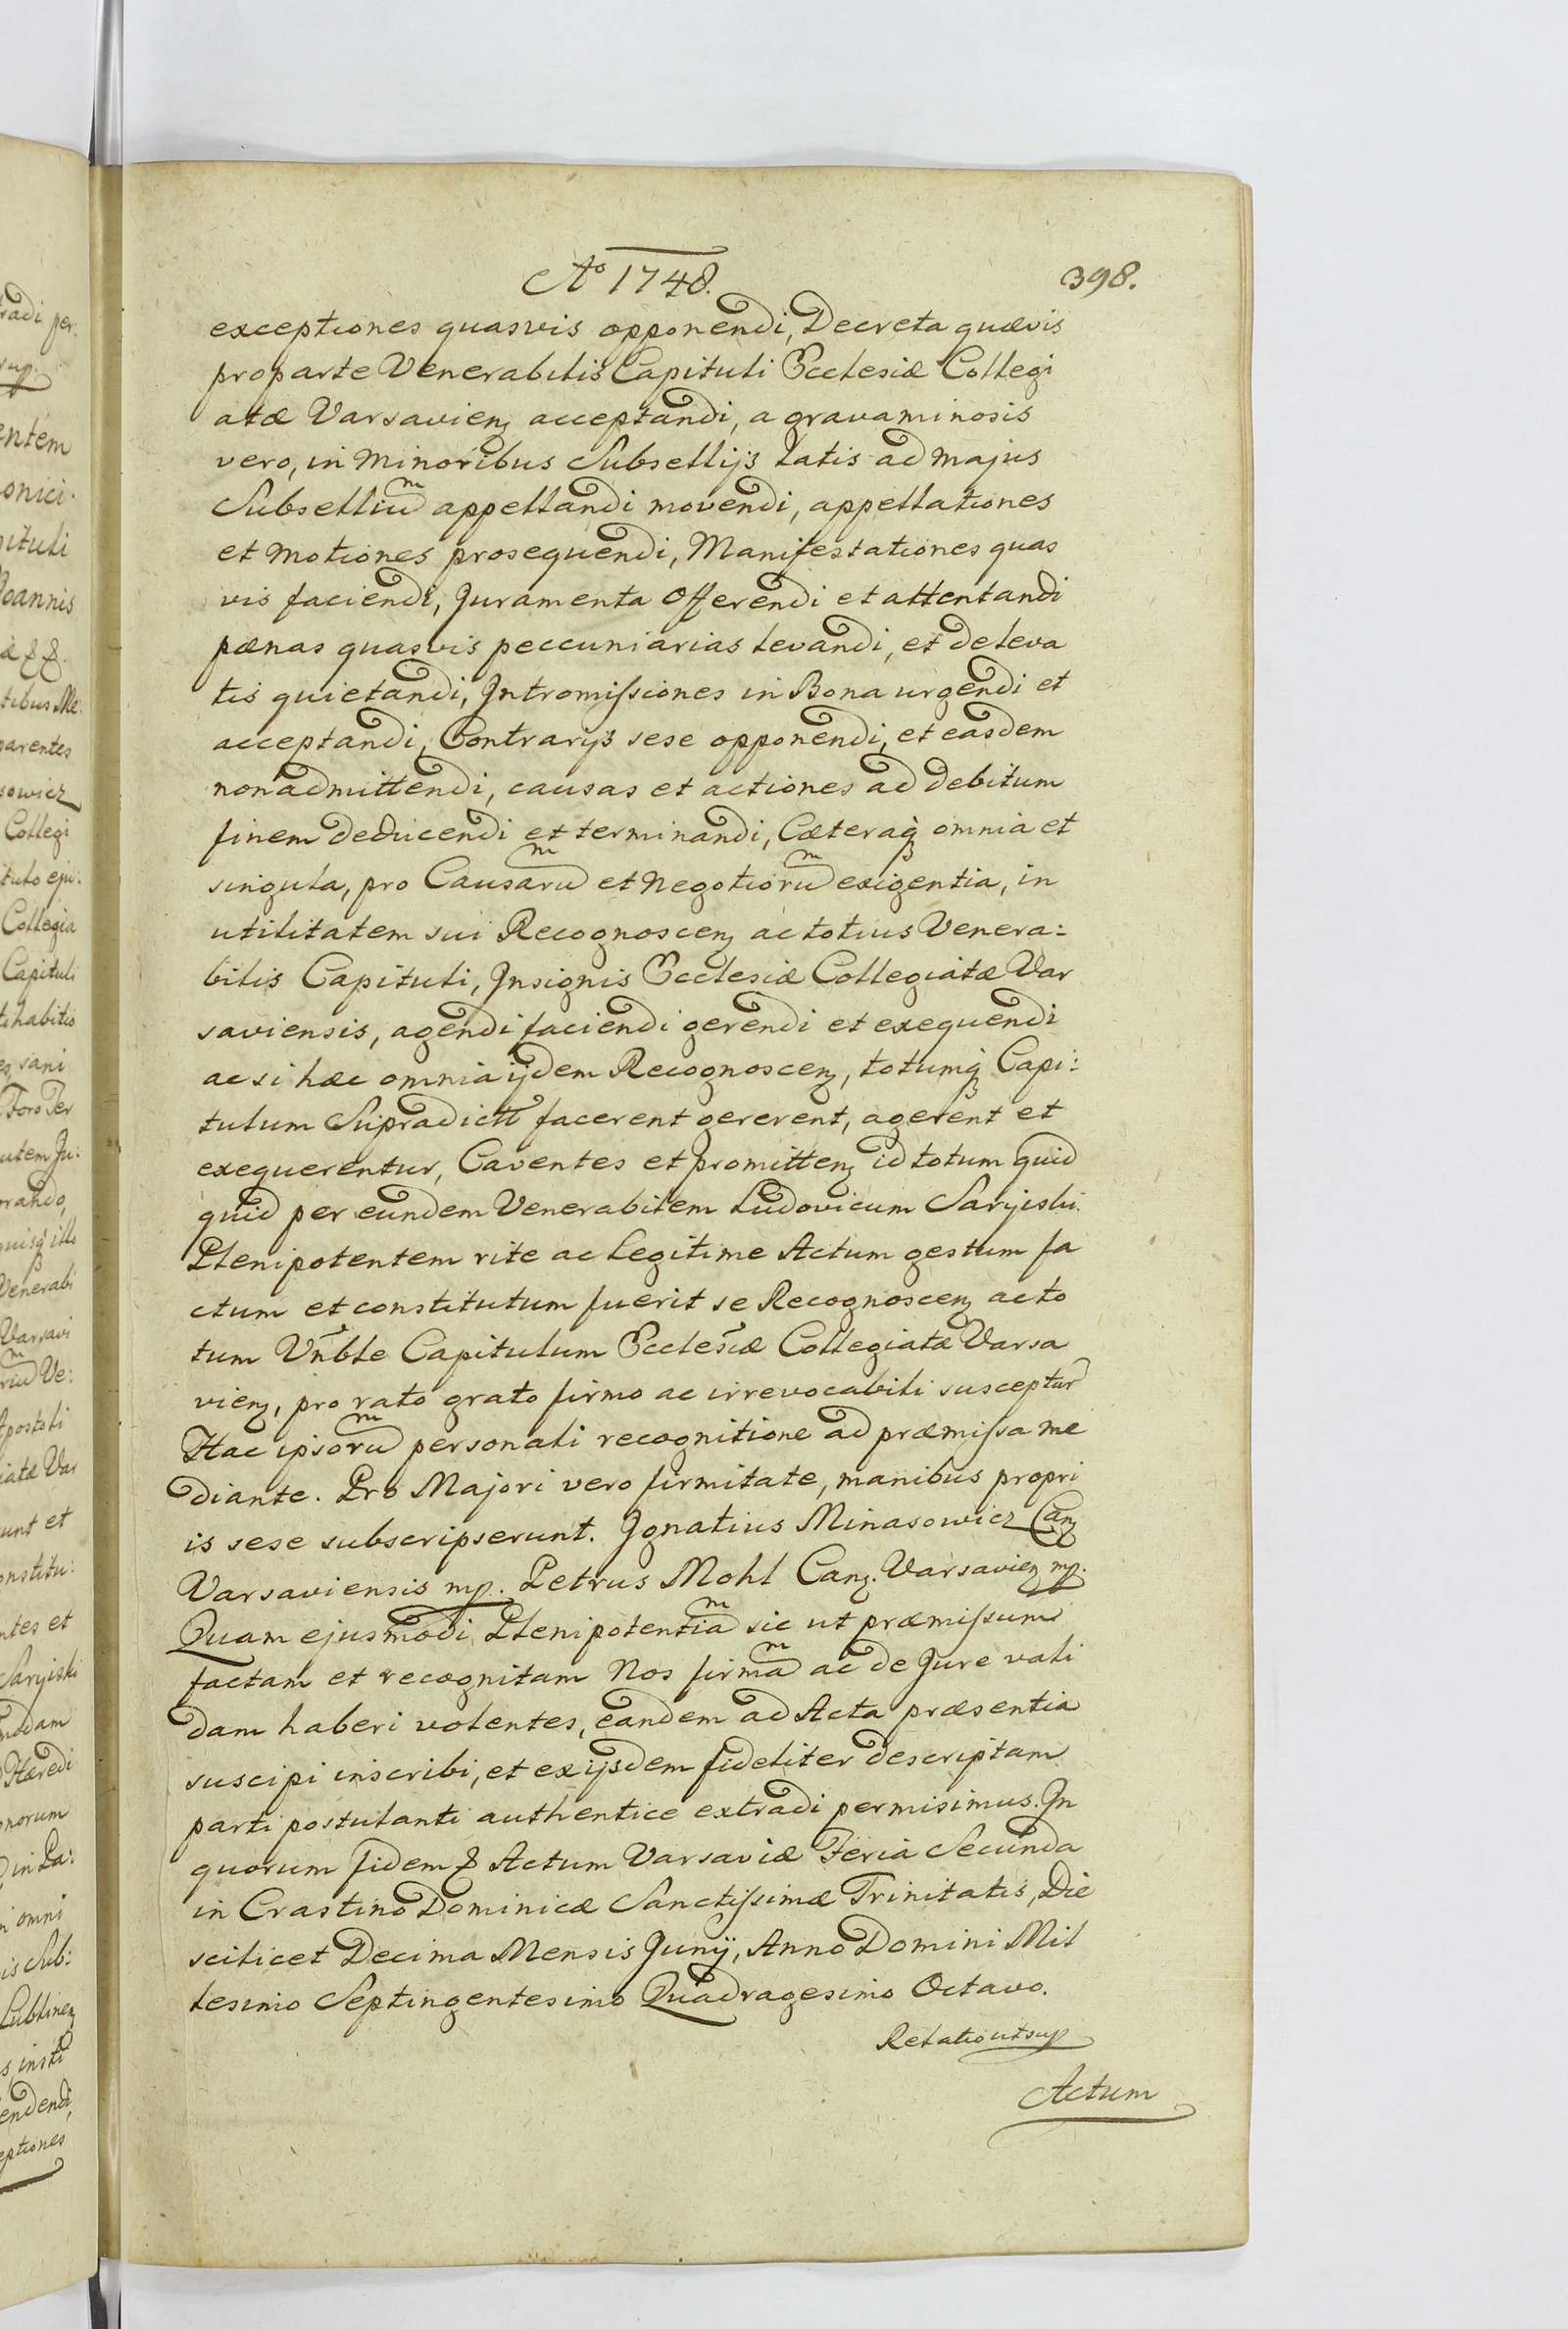 Aº 1748. 398.
exceptiones quasvis opponendi, Decreta quævis
pro parte Venerabilis Capituli Ecclesiæ Collegi
atæ Varsavienȝ acceptandi, a gravaminosis
vero, in minoribus Subsellijs latis ad majus
Subselliuͫ appellandi movendi, appellationes
et motiones prosequendi, Manifestationes quas
vis faciendi, Juramenta Offerendi et attentandi
pænas quasvis peccuniarias levandi, et de leva
tis quietandi, Intromissiones in Bona urgendi et
acceptandi, Contrarijs sese opponendi, et easdem
non admittendi, causas et actiones ad debitum
finem deducendi et terminandi, Cæteraqꝫ omnia et
singula, pro Causaruͫ et negotioruͫ exigentia, in
utilitatem sui Recognoscenȝ ac totius Venera:
bilis Capituli, Insignis Ecclesiæ Collegiatæ Var
saviensis, agendi faciendi gerendi et exequendi
ac si hæc omnia ijdem Recognoscenȝ, totumqꝫ Capi:
tulum Supradictt facerent gererent, agerent et
exequerentur, Caventes et promittenȝ id totum quid
quid per eundem Venerabilem Ludovicum Saryiski
Plenipotentem rite ac Legitime Actum gestum fa
ctum et constitutum fuerit se Recognoscenȝ ac to
tum Vn̄ble Capitulum Ecclesiæ Collegiatæ Varsa
vienȝ, pro rato grato firmo ac irrevocabili susceptur
Hac ipsoruͫ personali recognitione ad præmissa me
diante. Pro Majori vero firmitate, manibus propri
is sese subscripserunt. Ignatius Minasowicz Canȝ
Varsaviensis mp. Petrus Mohl Canȝ. Varsavienȝ mp.
Quam ejusmodi Plenipotentiaͫ sic ut præmissum
factam et recognitam Nos firmaͫ ac de Jure vali
dam haberi volentes, eandem ad Acta præsentia
suscipi inscribi, et ex ijsdem fideliter descriptam
parti postulanti authentice extradi permisimus. In
quorum fidem & Actum Varsaviæ Feria Secunda
in Crastino Dominicæ Sanctissimæ Trinitatis, Die
scilicet Decima Mensis Junij, Anno Domini Mil
lesimo Septingentesimo Quadragesimo Octavo.
Relatio ut sup
Actum